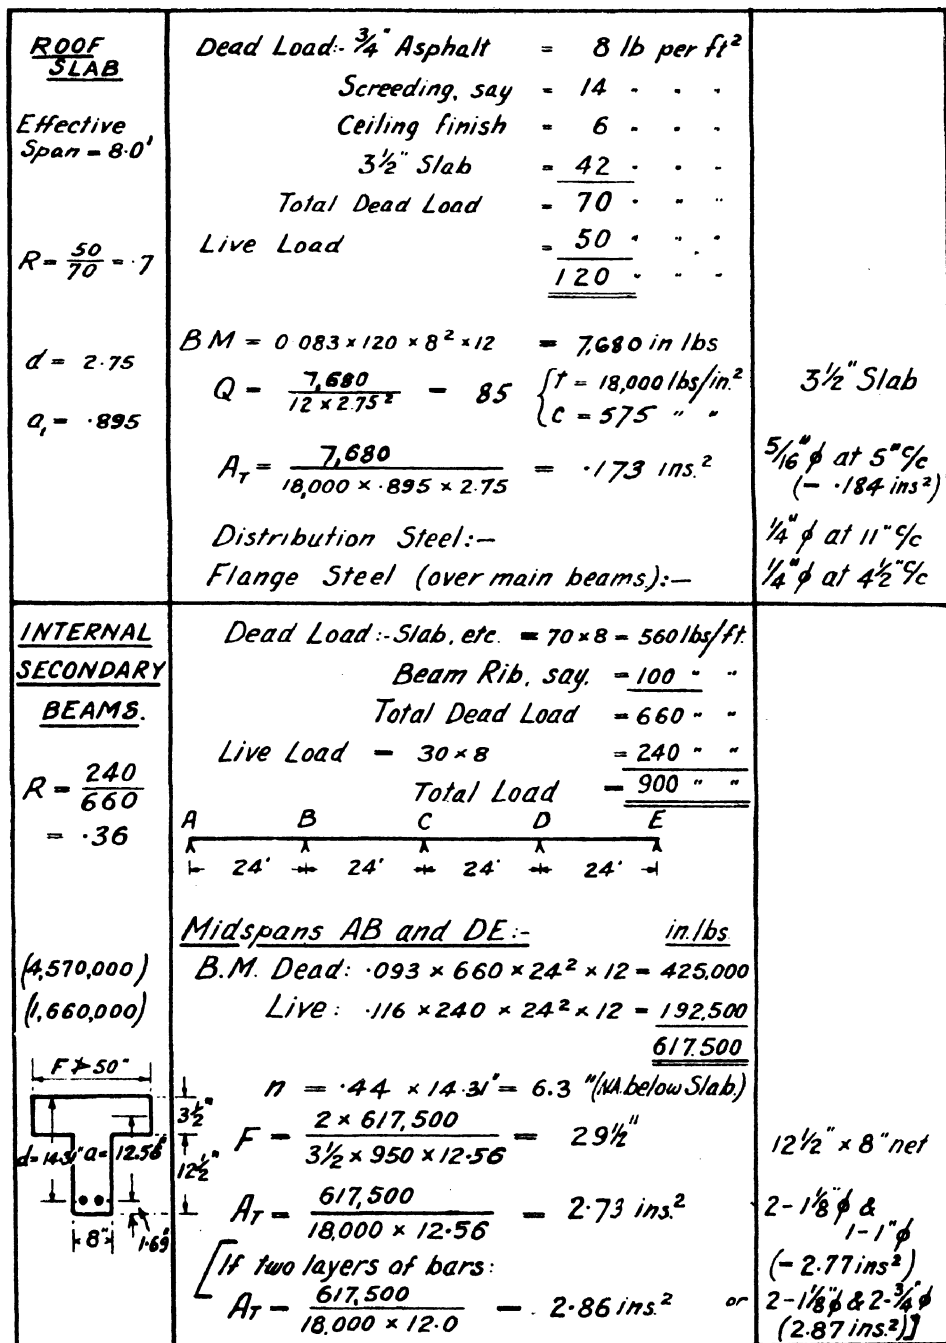 ROOF
SLAB
Effective
Span = 8·0'
R = 50/70 = ·7
d = 2·75
a₁ = ·895
Dead Load:- ¾" Asphalt = 8 lb per ft²
Screeding, say = 14 " " "
Ceiling finish = 6 " " "
3½" Slab = 42 " " "
Total Dead Load = 70 " " "
Live Load = 50 " " "
120 " " "
BM = 0·083 × 120 × 8² × 12 = 7,680 in lbs
Q = 7,680 / 12 × 2·75² = 85 { t = 18,000 lbs/in.²
c = 575 " "
A_T = 7,680 / 18,000 × ·895 × 2·75 = ·173 ins.²
Distribution Steel:-
Flange Steel (over main beams):-
3½" Slab
5/16" ϕ at 5" c/c
(= ·184 ins²)
¼" ϕ at 11" c/c
¼" ϕ at 4½" c/c
INTERNAL
SECONDARY
BEAMS.
R = 240/660
= ·36
(4,570,000)
(1,660,000)
F ≯ 50"
3½"
d = 14·31" a = 12·56"
12½"
8"
1·69"
Dead Load:- Slab, etc. = 70 × 8 = 560 lbs/ft.
Beam Rib, say. = 100 " "
Total Dead Load = 660 " "
Live Load = 30 × 8 = 240 " "
Total Load = 900 " "
A B C D E
24' 24' 24' 24'
Midspans AB and DE:- in.lbs
B.M. Dead: ·093 × 660 × 24² × 12 = 425,000
Live: ·116 × 240 × 24² × 12 = 192,500
617,500
n = ·44 × 14·31" = 6·3" (NA. below Slab.)
F = 2 × 617,500 / 3½ × 950 × 12·56 = 29½"
A_T = 617,500 / 18,000 × 12·56 = 2·73 ins.²
[If two layers of bars:
A_T = 617,500 / 18,000 × 12·0 = 2·86 ins.² or
12½" × 8" net
2 - 1⅛" ϕ &
1 - 1" ϕ
(= 2·77 ins²)
2 - 1⅛" ϕ & 2 - ¾" ϕ
(2·87 ins.²)]